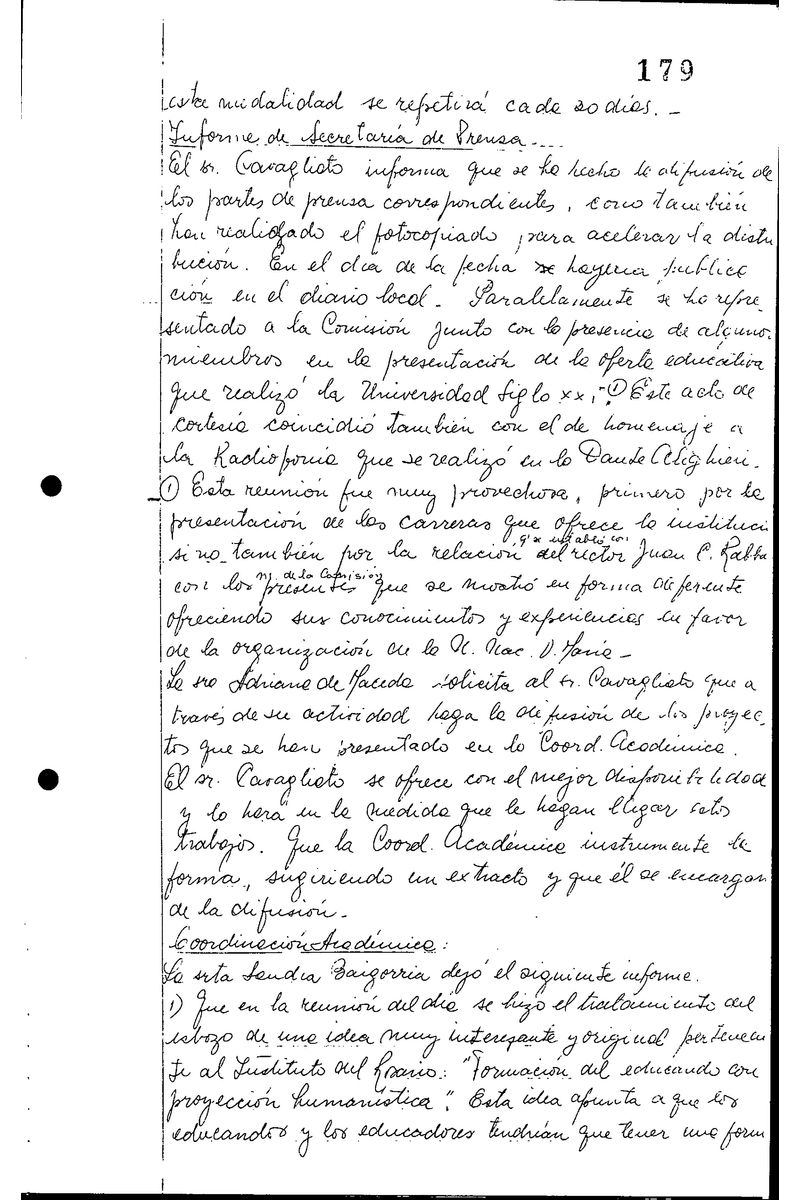 179
esta modalidad se repetirá cada 20 días. -
Informe de Secretaría de Prensa....
El sr. Cavagliato informa que se ha hecho la difusión de
los partes de prensa correspondientes, como también
han realizado el fotocopiado para acelerar la distri
bución. En el día de la fecha se hayería publica
ción en el diario local. Paralelamente se ha repre-
sentado a la Comisión junto con la presencia de alguno.
miembros en la presentación de la oferta educativa
que realizó la Universidad Siglo XXI,- ① Este acto de
cortesía coincidió también con el de homenaje a
la Radiofonía que se realizó en la Dante Alighieri.
① Esta reunión fue muy provechosa, primero por la
presentación de las carreras que ofrece la instituci
q' se entabló con
sino también por la relación del rector Juan C. Rabba
m. de la Comisión
con los presentes que se mostró en forma deferente
ofreciendo sus conocimientos y experiencias en favor
de la organización de la U. Nac. V. María -
La sra Adriana de Maceda solicita al sr. Cavagliato que a
través de su actividad haga la difusión de los proyec-
tos que se han presentado en la Coord. Académica.
El sr. Cavagliato se ofrece con el mejor disponibilidad
y lo hará en la medida que le hagan llegar estos
trabajos. Que la Coord. Académica instrumente la
forma, sugiriendo un extracto y que él se encargan
de la difusión.
Coordinación Académica:
La srta Sandra Baigorria dejó el siguiente informe.
1) Que en la reunión del día se hizo el tratamiento del
esbozo de una idea muy interesante y original pertenecien
te al Instituto del Rosario: "Formación del educando con
proyección humanística". Esta idea apunta a que los
educandos y los educadores tendrían que tener una form